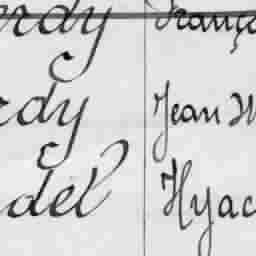 erdy Franço
rdy Jean M
del Hyac